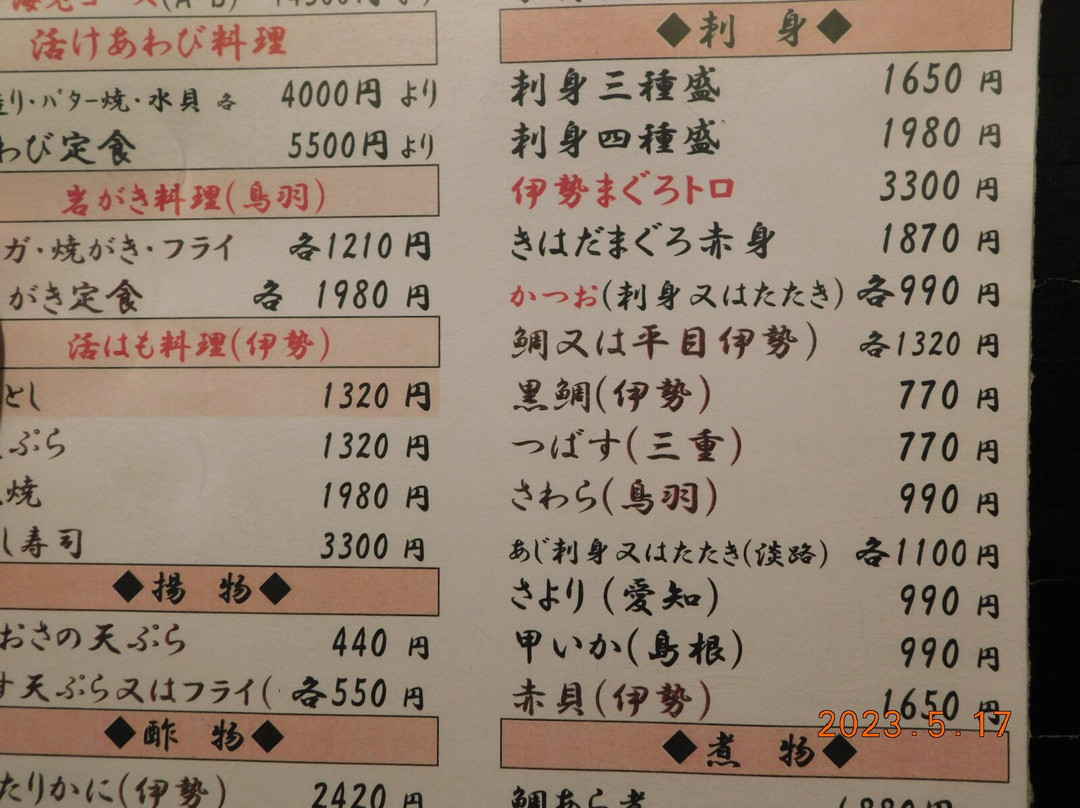 活けあわび料理
り・バター焼・水貝 各 4000円より
わび定食 5500円より
岩がき料理(鳥羽)
ガ・焼がき・フライ 各1210円
がき定食 各 1980円
活はも料理(伊勢)
とし 1320円
ぷら 1320円
焼 1980円
し寿司 3300円
◆揚 物◆
おさの天ぷら 440円
す天ぷら又はフライ( 各550円
◆酢 物◆
たりかに(伊勢) 2420円
◆刺 身◆
刺身三種盛 1650円
刺身四種盛 1980円
伊勢まぐろトロ 3300円
きはだまぐろ赤身 1870円
かつお(刺身又はたたき) 各990円
鯛又は平目伊勢) 各1320円
黒鯛(伊勢) 770円
つばす(三重) 770円
さわら(鳥羽) 990円
あじ刺身又はたたき(淡路) 各1100円
さより(愛知) 990円
甲いか(島根) 990円
赤貝(伊勢) 1650円
2023.5.17
◆煮 物◆
鯛あら煮